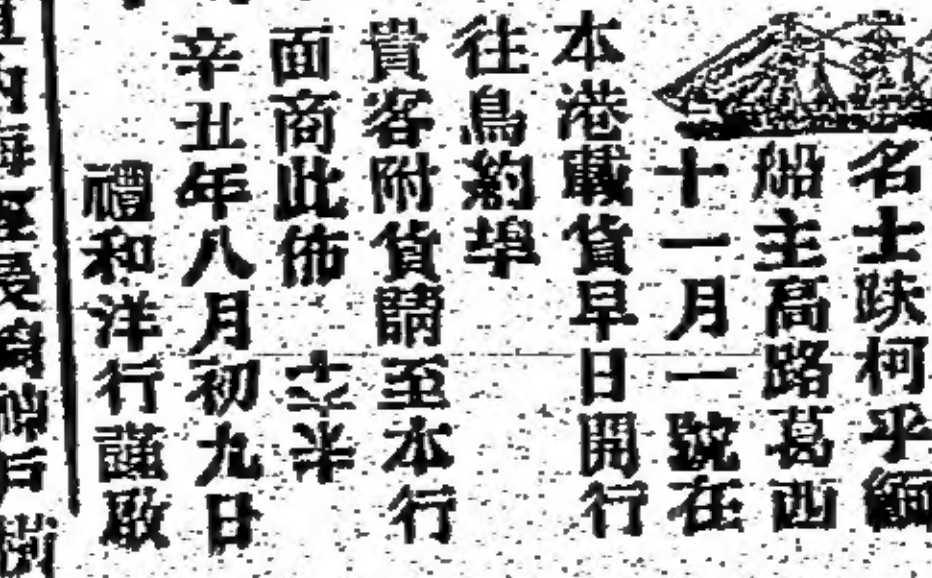 名士陝柯乎緬
船主高路葛西
十一月一號在
本港載貨早日開行
往鳥約埠
貴客附貨請至本行
面商此佈 十六半
辛丑年八月初九日
禮和洋行謹啟